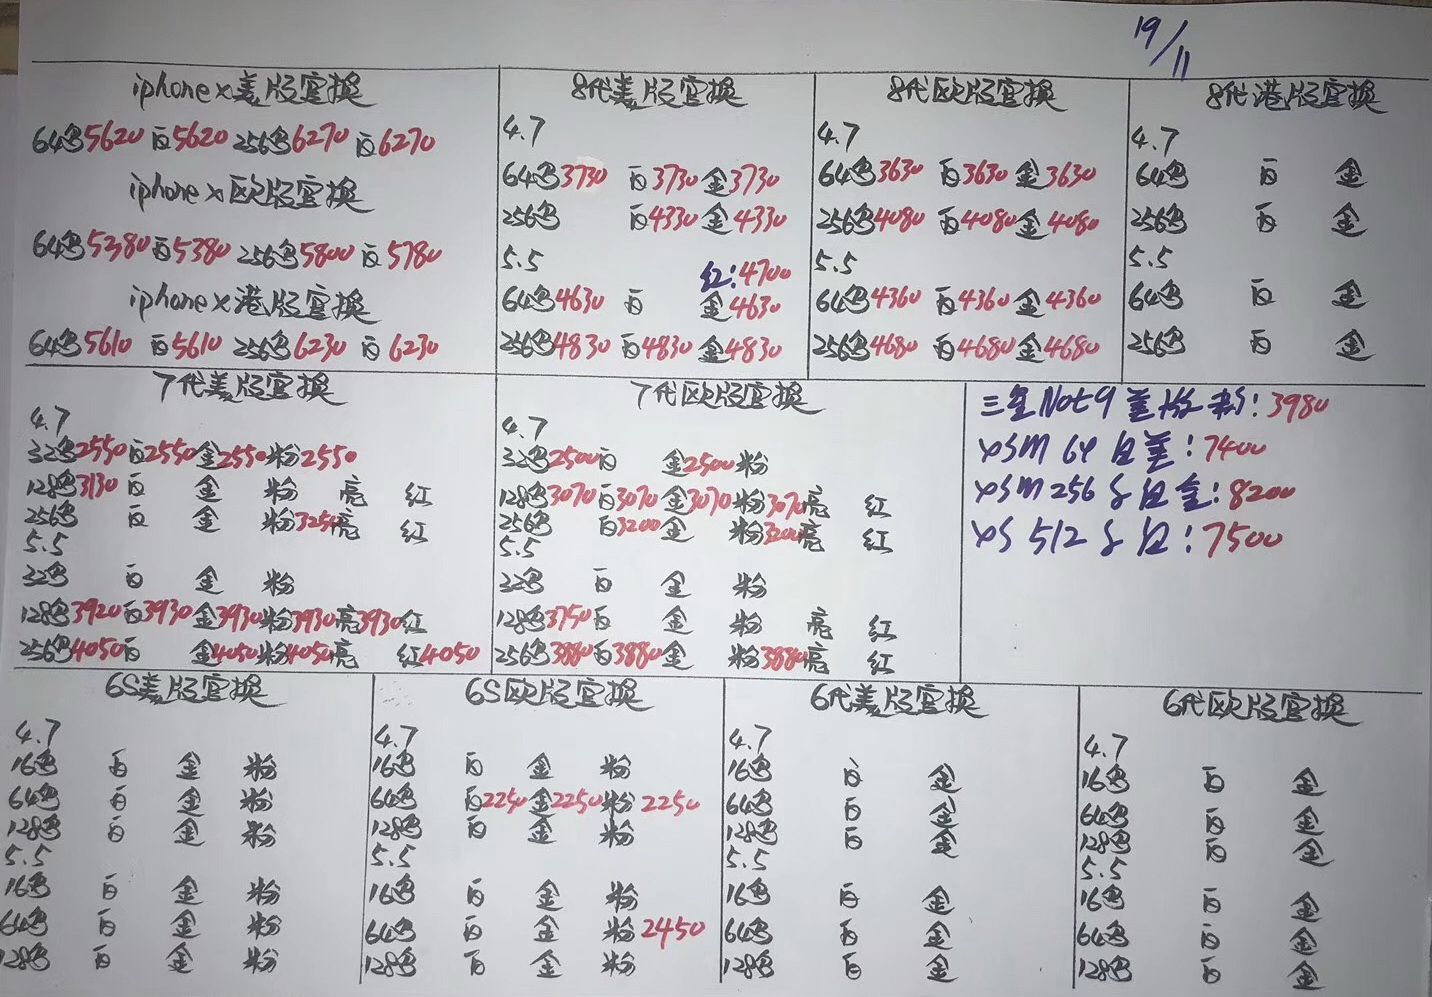 19/11
iphone x美版官换
64鸟5620 白5620 256鸟6270 白6270
iphone x欧版官换
64鸟5380 白5380 256鸟5800 白5780
iphone x港版官换
64鸟5610 白5610 256鸟6230 白6230
8代美版官换
4.7
64鸟3730 白3730 金3730
256鸟 白4330 金4330
5.5
红:4700
64鸟4630 白 金4630
256鸟4830 白4830 金4830
8代欧版官换
4.7
64鸟3630 白3630 金3630
256鸟4080 白4080 金4080
5.5
64鸟4360 白4360 金4360
256鸟4680 白4680 金4680
8代港版官换
4.7
64鸟 白 金
256鸟 白 金
5.5
64鸟 白 金
256鸟 白 金
7代美版官换
4.7
32鸟2550 白2550 金2550 粉2550
128鸟3130 白 金 粉 亮 红
256鸟 白 金 粉3250 亮 红
5.5
32鸟 白 金 粉
128鸟3920 白3930 金3930 粉3930 亮3930 红
256鸟4050 白 金4050 粉4050 亮 红4050
7代欧版官换
4.7
32鸟2500 白 金2500 粉
128鸟3070 白3070 金3070 粉3070 亮 红
256鸟 白3200 金 粉3200 亮 红
5.5
32鸟 白 金 粉
128鸟3750 白 金 粉 亮 红
256鸟3880 白3880 金 粉3880 亮 红
三星Not9 美 :3980
XSM 64 白美:7400
XSM 256 白金:8200
XS 512 白:7500
6S美版官换
4.7
16鸟 白 金 粉
64鸟 白 金 粉
128鸟 白 金 粉
5.5
16鸟 白 金 粉
64鸟 白 金 粉
128鸟 白 金 粉
6S欧版官换
4.7
16鸟 白 金 粉
64鸟 白2250 金2250 粉2250
128鸟 白 金 粉
5.5
16鸟 白 金 粉
64鸟 白 金 粉2450
128鸟 白 金 粉
6代美版官换
4.7
16鸟 白 金
64鸟 白 金
128鸟 白 金
5.5
16鸟 白 金
64鸟 白 金
128鸟 白 金
6代欧版官换
4.7
16鸟 白 金
64鸟 白 金
128鸟 白 金
5.5
16鸟 白 金
64鸟 白 金
128鸟 白 金